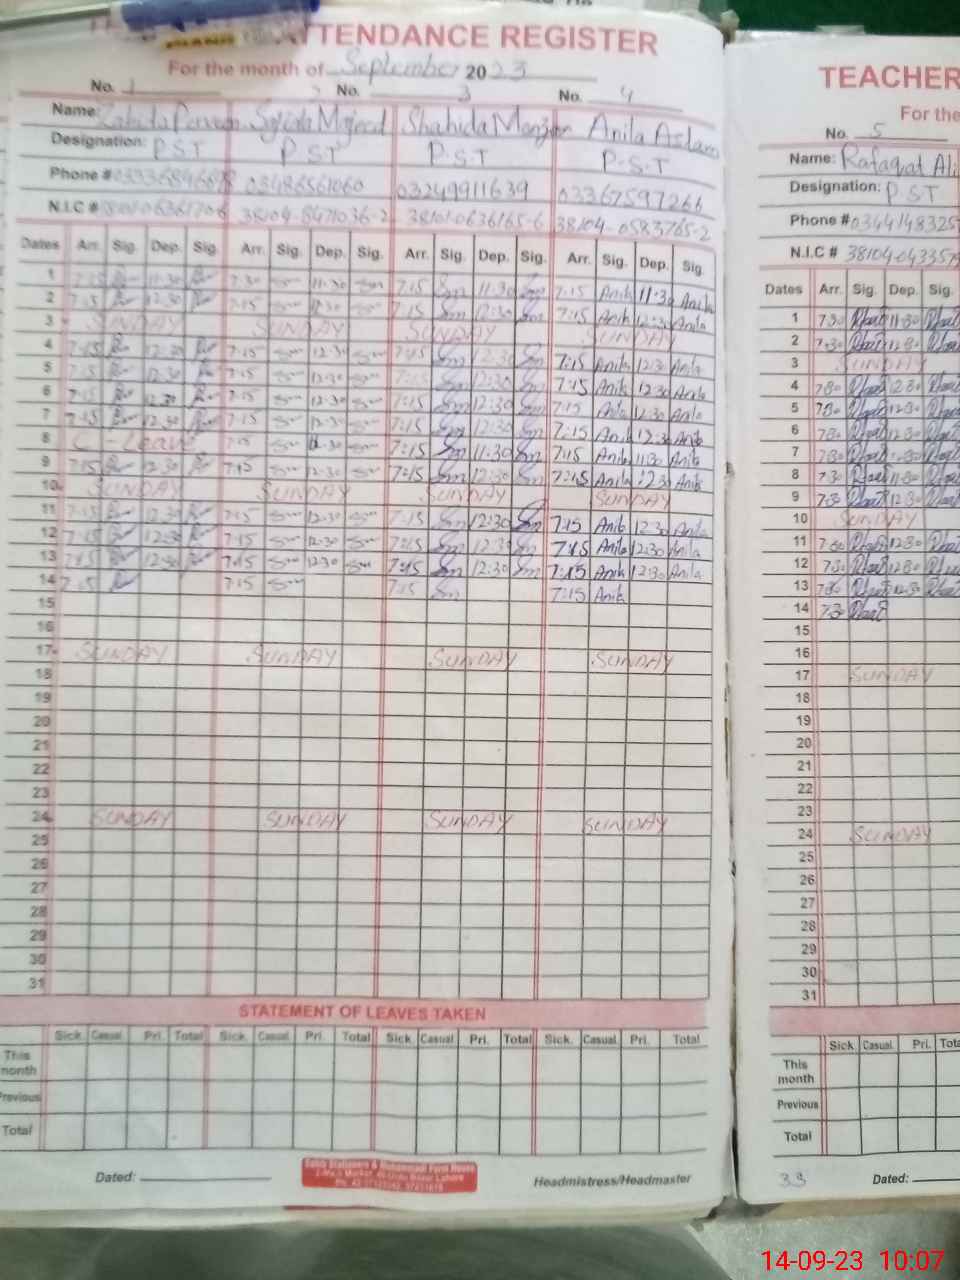 ATTENDANCE REGISTER
For the month of September 2023
No. 1 2 No. 3 No. 4
Name: Zahida Parveen Sajida Majeed Shahida Manzoor Anila Aslam
Designation: P.S.T P.S.T P.S.T P.S.T
Phone # 03486561060 03249911639 03367597266
N.I.C # 38104-8471036-2 38101-0636165-6 38104-0583765-2
Dates Arr. Sig. Dep. Sig. Arr. Sig. Dep. Sig. Arr. Sig. Dep. Sig. Arr. Sig. Dep. Sig.
1 7:15 11:30 7:30 11:30 7:15 Sm 11:30 Sm 7:15 Anila 11:30 Anila
2 7:15 12:30 7:15 12:30 7:15 Sm 12:30 Sm 7:15 Anila 12:30 Anila
3 SUNDAY SUNDAY SUNDAY SUNDAY
4 7:15 12:30 7:15 12:30 7:15 Sm 12:30 Sm 7:15 Anila 12:30 Anila
5 7:15 12:30 7:15 12:30 7:15 Sm 12:30 Sm 7:15 Anila 12:30 Anila
6 7:15 12:30 7:15 12:30 7:15 Sm 12:30 Sm 7:15 Anila 12:30 Anila
7 7:15 12:30 7:15 12:30 7:15 Sm 12:30 Sm 7:15 Anila 12:30 Anila
8 C-Leave 7:15 11:30 7:15 Sm 11:30 Sm 7:15 Anila 11:30 Anila
9 7:15 12:30 7:15 12:30 7:15 Sm 12:30 Sm 7:15 Anila 12:30 Anila
10 SUNDAY SUNDAY SUNDAY SUNDAY
11 7:15 12:30 7:15 12:30 7:15 Sm 12:30 Sm 7:15 Anila 12:30 Anila
12 7:15 12:30 7:15 12:30 7:15 Sm 12:30 Sm 7:15 Anila 12:30 Anila
13 7:15 12:30 7:15 12:30 7:15 Sm 12:30 Sm 7:15 Anila 12:30 Anila
14 7:15 7:15 7:15 Sm 7:15 Anila
15
16
17 SUNDAY SUNDAY SUNDAY SUNDAY
18
19
20
21
22
23
24 SUNDAY SUNDAY SUNDAY SUNDAY
25
26
27
28
29
30
31
STATEMENT OF LEAVES TAKEN
Sick. Casual. Pri. Total Sick. Casual. Pri. Total Sick. Casual. Pri. Total Sick. Casual. Pri. Total
This month
Previous
Total
Dated: Headmistress/Headmaster
TEACHER
For the
No. 5
Name: Rafaqat Ali
Designation: P.S.T
Phone # 0344148325
N.I.C # 38104-043357
Dates Arr. Sig. Dep. Sig.
1 7:30 11:30
2 7:30 12:30
3 SUNDAY
4 7:30 12:30
5 7:30 12:30
6 7:30 12:30
7 7:30 12:30
8 7:30 11:30
9 7:30 12:30
10 SUNDAY
11 7:30 12:30
12 7:30 12:30
13 7:30 12:30
14 7:30
15
16
17 SUNDAY
18
19
20
21
22
23
24 SUNDAY
25
26
27
28
29
30
31
Sick Casual. Pri.
This month
Previous
Total
33 Dated:
14-09-23 10:07